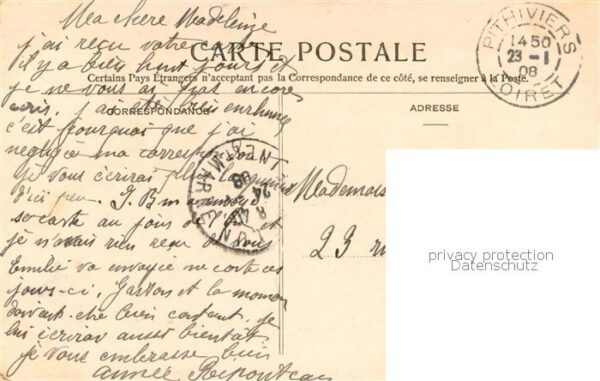 Ma chère Madeleine
j'ai reçu votre carte
il y a bien huit jours et
CARTE POSTALE
Certains Pays Étrangers n'acceptent pas la Correspondance de ce côté, se renseigner à la Poste.
je ne vous ai pas encore
CORRESPONDANCE
ADRESSE
écris, j'ai été bien enrhumée
c'est pourquoi que j'ai
négligée ma correspondance
je vous écrirai plus
d'ici peu. J. B m'a envoyé
sa carte au jour de l'an et
je n'avais rien reçu de vous
Emilie va envoyée une carte ces
jours-ci, Gaston et la maman
doivent-être bien content, je
lui écrirai aussi bientôt
je vous embrasse bien
Mademois
23 ru
PITHIVIERS
1450
23 - 1
08
LOIRET
MARNE
24
privacy protection
Datenschutz